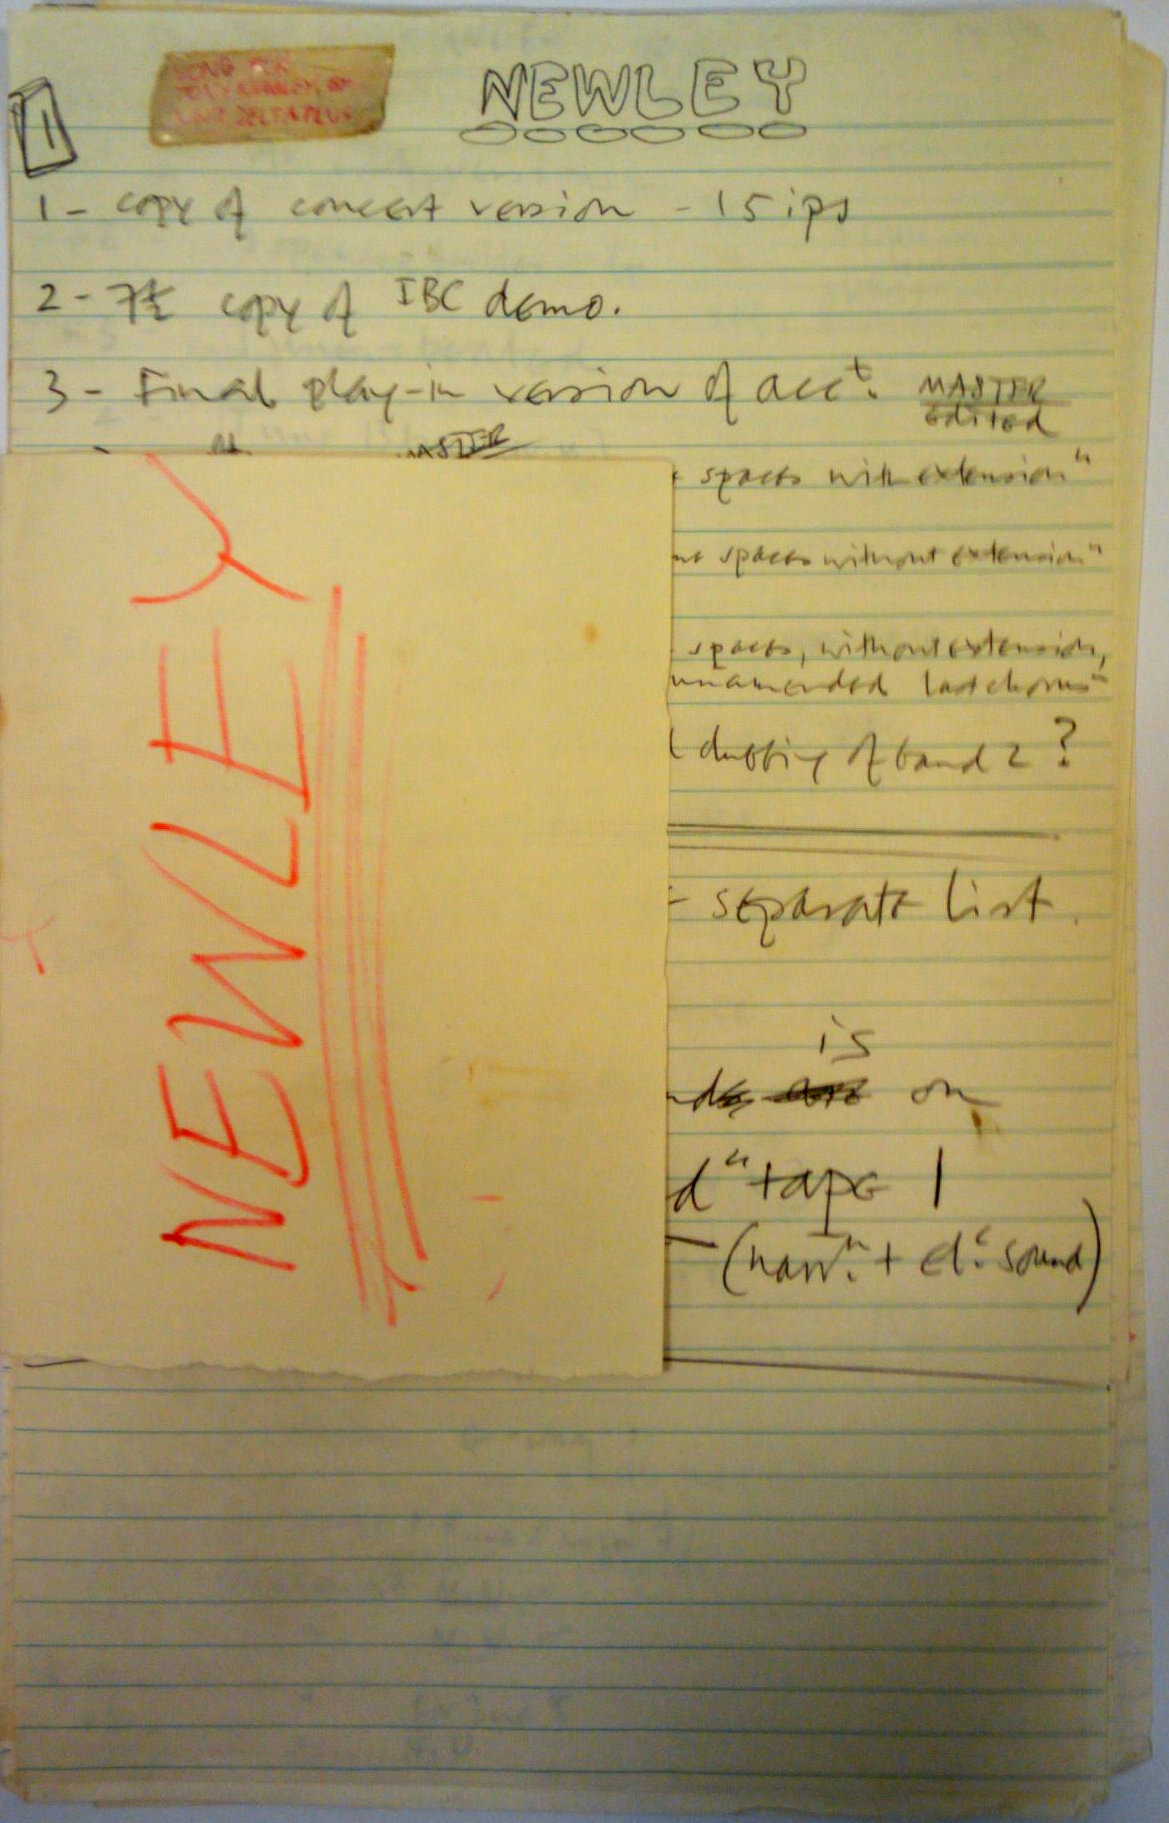 NEWLEY
1
SONG FOR
DELTA PLUS
1 - copy of concert version - 15 ips
2 - 7½ copy of IBC demo.
3 - Final play-in version of acct. MASTER
Edited
MASTER
spaces with extension"
spaces without extension"
spaces, without extension,
unamended last chorus"
dubbing of band 2 ?
- separate list.
is
on
d" tape 1
(narrn. + elc. sound)
NEWLEY